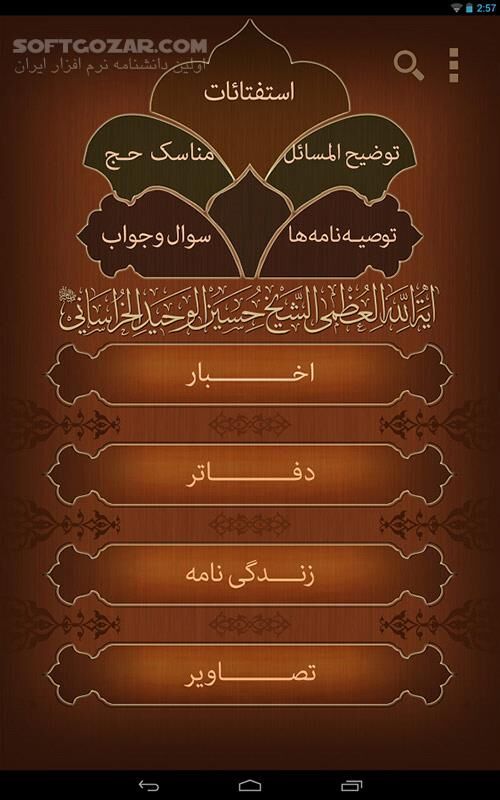 2:57
SOFTGOZAR.COM
اولین دانشنامه نرم افزار ایران
استفتائات
توضیح المسائل
مناسک حج
توصیه‌نامه‌ها
سوال و جواب
آیة الله العظمی الشیخ حسین الوحید الخراسانی
اخبار
دفاتر
زندگی نامه
تصاویر